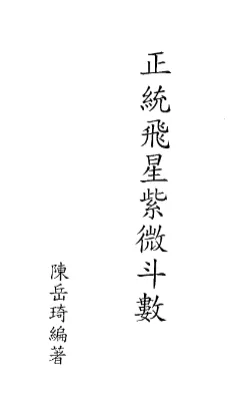 正統飛星紫微斗數
陳岳琦編著